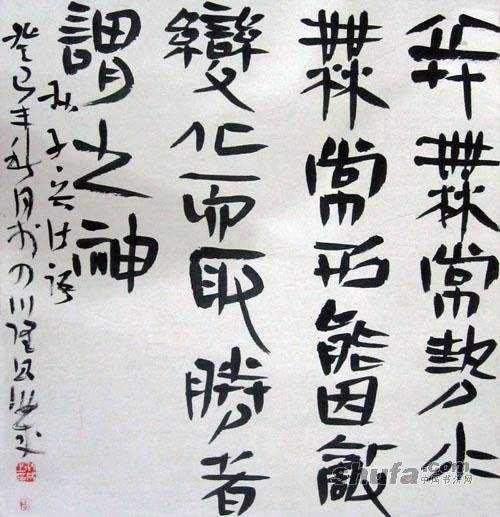 兵無常勢水
無常形能因敵
變化而取勝者
謂之神
孙子兵法语
癸巳年秋月於四川隆昌
shufa.com
中国书法网